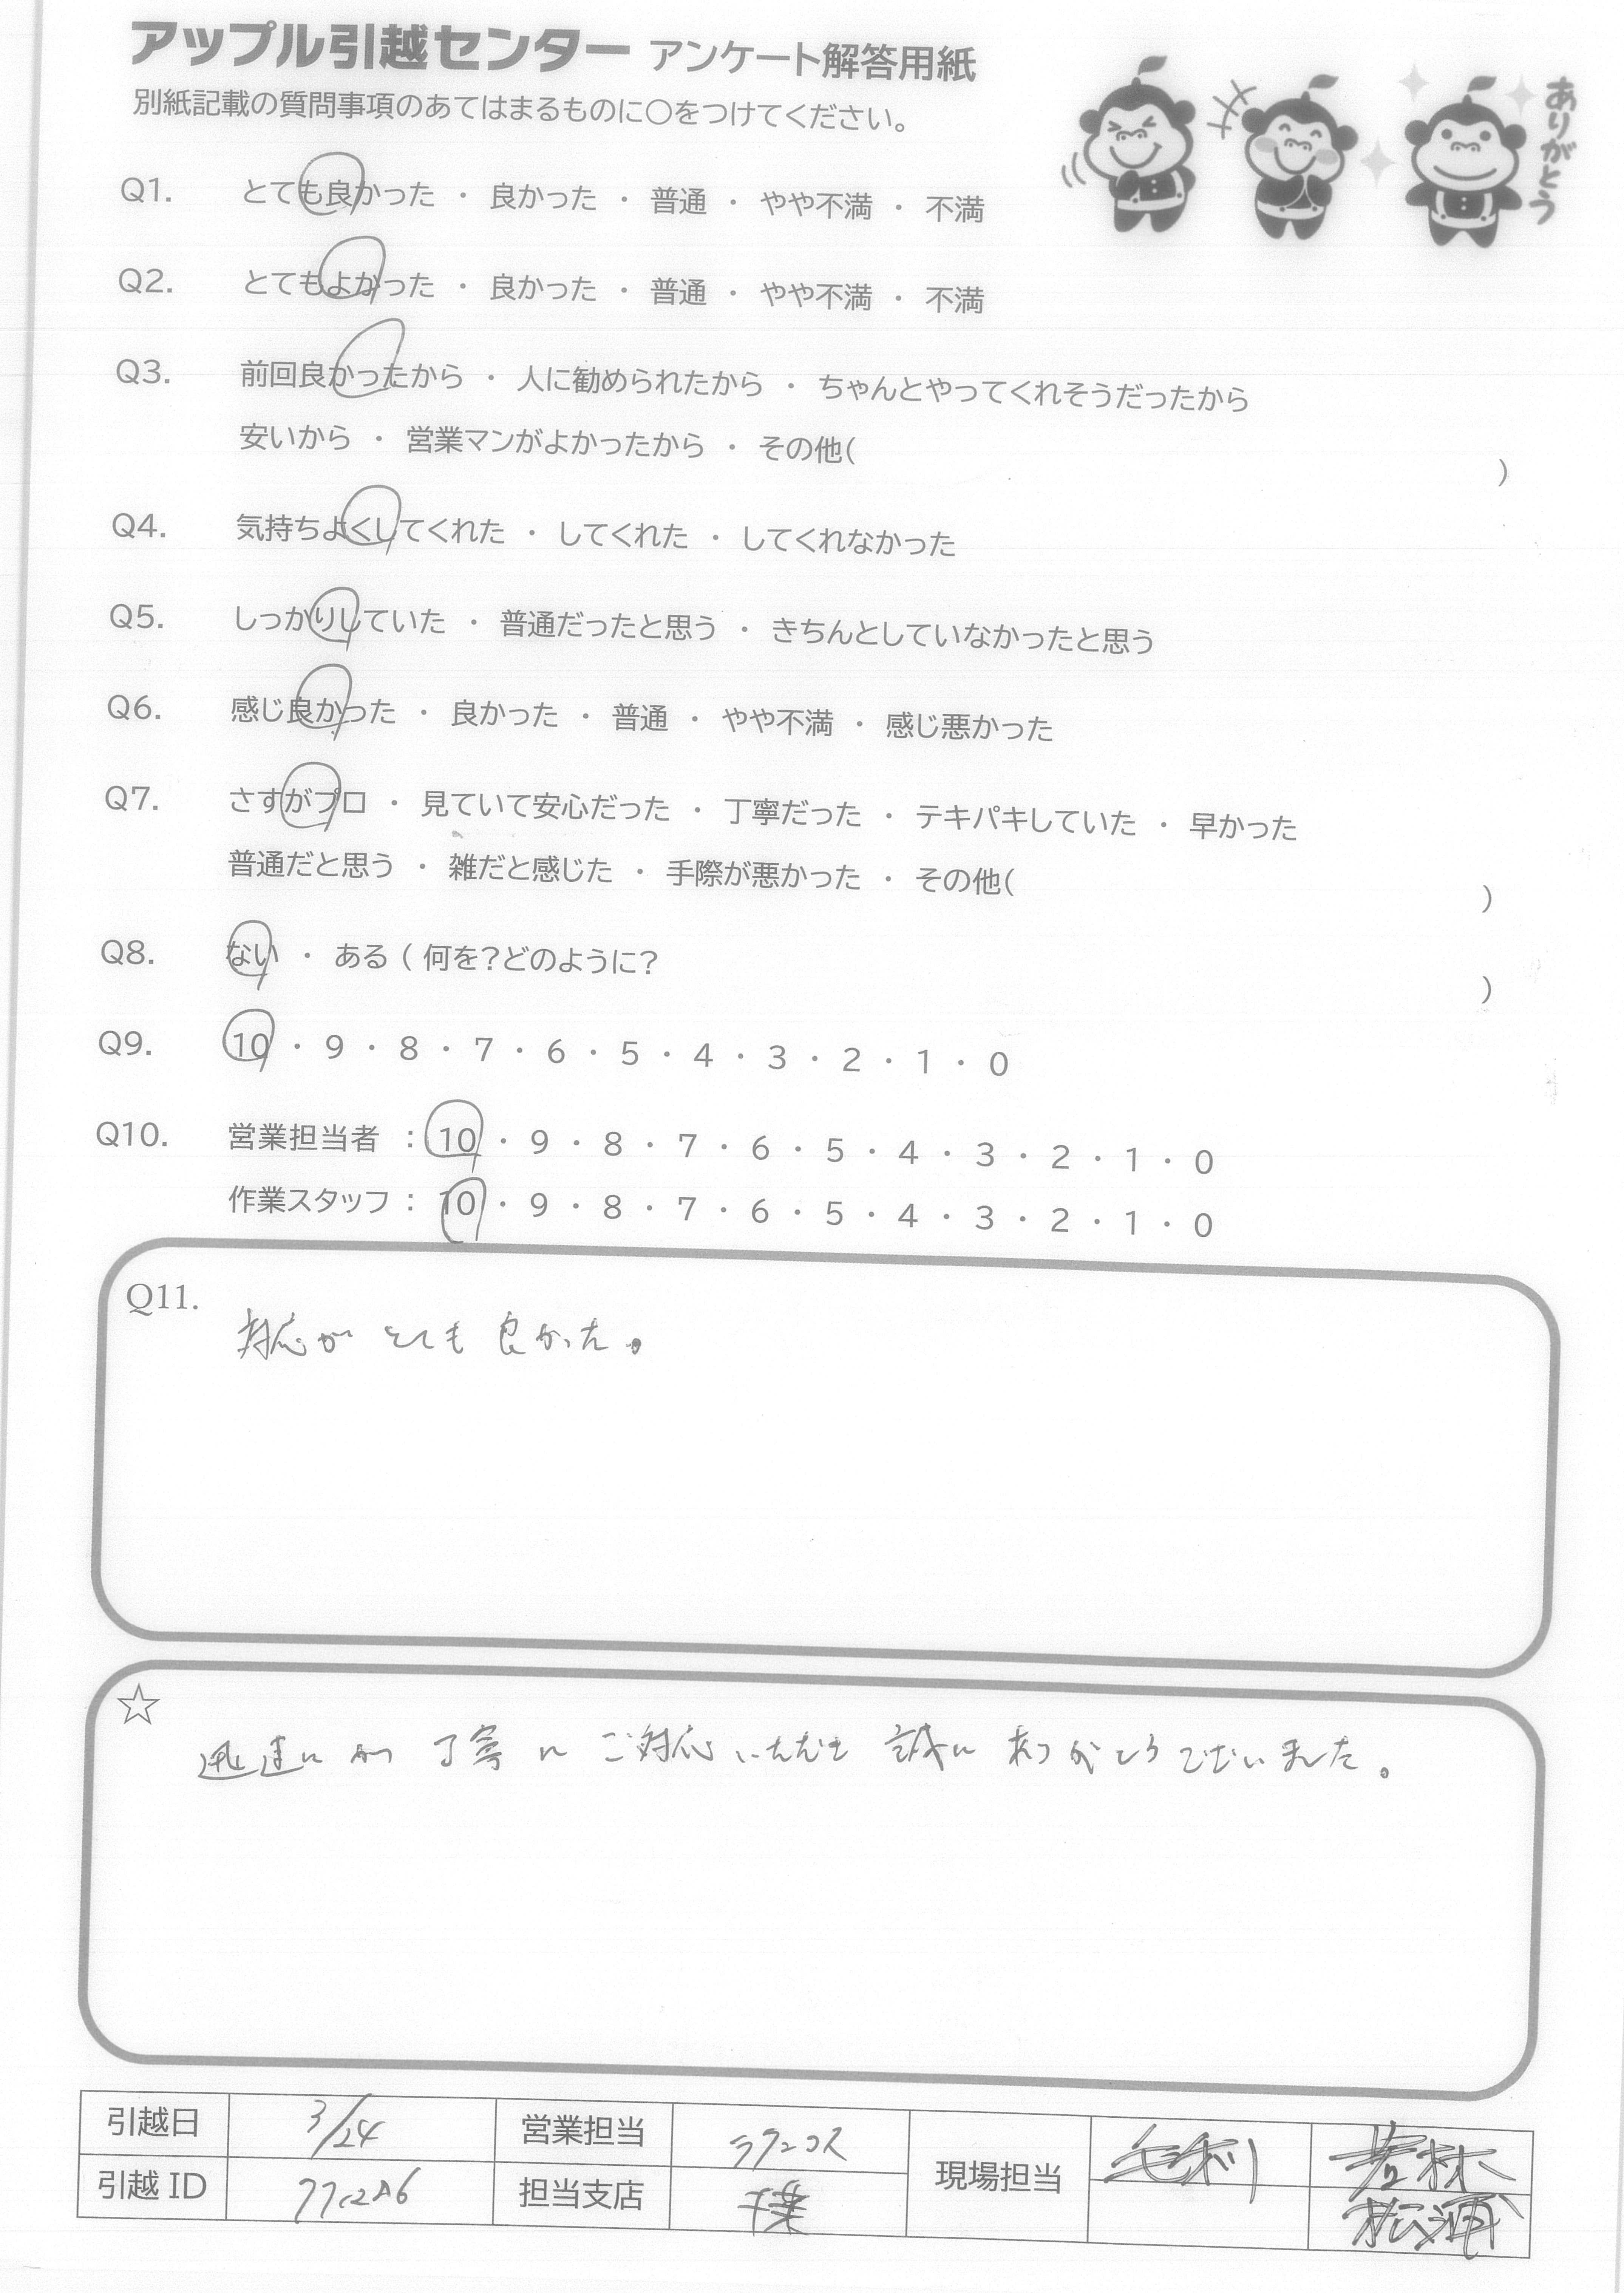 アップル引越センター アンケート解答用紙
別紙記載の質問事項のあてはまるものに〇をつけてください。
ありがとう
Q1. とても良かった ・ 良かった ・ 普通 ・ やや不満 ・ 不満
Q2. とてもよかった ・ 良かった ・ 普通 ・ やや不満 ・ 不満
Q3. 前回良かったから ・ 人に勧められたから ・ ちゃんとやってくれそうだったから
安いから ・ 営業マンがよかったから ・ その他( )
Q4. 気持ちよくしてくれた ・ してくれた ・ してくれなかった
Q5. しっかりしていた ・ 普通だったと思う ・ きちんとしていなかったと思う
Q6. 感じ良かった ・ 良かった ・ 普通 ・ やや不満 ・ 感じ悪かった
Q7. さすがプロ ・ 見ていて安心だった ・ 丁寧だった ・ テキパキしていた ・ 早かった
普通だと思う ・ 雑だと感じた ・ 手際が悪かった ・ その他( )
Q8. ない ・ ある ( 何を?どのように? )
Q9. 10 ・ 9 ・ 8 ・ 7 ・ 6 ・ 5 ・ 4 ・ 3 ・ 2 ・ 1 ・ 0
Q10. 営業担当者 : 10 ・ 9 ・ 8 ・ 7 ・ 6 ・ 5 ・ 4 ・ 3 ・ 2 ・ 1 ・ 0
作業スタッフ : 10 ・ 9 ・ 8 ・ 7 ・ 6 ・ 5 ・ 4 ・ 3 ・ 2 ・ 1 ・ 0
Q11.
対応がとても良かった。
☆
迅速にかつ丁寧にご対応いただき誠にありがとうございました。
引越日 3/24 営業担当 現場担当 毛利 若林
引越ID 担当支店 千葉 松浦